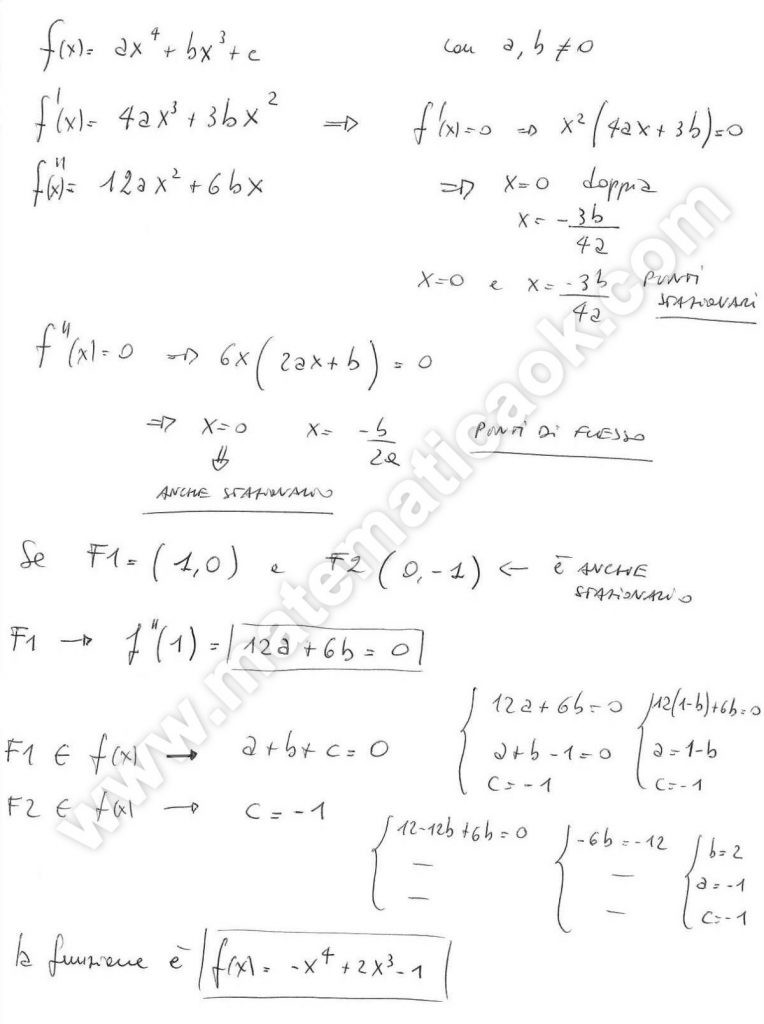 f(x)= ax⁴ + bx³ + c con a, b ≠ 0
f'(x)= 4ax³ + 3bx² ⇒ f'(x)=0 ⇒ x²(4ax+3b)=0
f''(x)= 12ax² + 6bx ⇒ x=0 doppia
x= -3b/4a
x=0 e x= -3b/4a PUNTI STAZIONARI
f''(x)=0 ⇒ 6x(2ax+b) = 0
⇒ x=0 x= -b/2a PUNTI DI FLESSO
⇓
ANCHE STAZIONARIO
Se F1=(1,0) e F2(0,-1) ← È ANCHE STAZIONARIO
F1 → f''(1) = 12a+6b = 0
F1 ∈ f(x) → a+b+c=0
F2 ∈ f(x) → c=-1
{ 12a+6b=0
a+b-1=0
c=-1
{ 12(1-b)+6b=0
a=1-b
c=-1
{ 12-12b+6b=0
—
—
{ -6b=-12
—
—
{ b=2
a=-1
c=-1
la funzione è f(x)= -x⁴+2x³-1
www.matematicaok.com